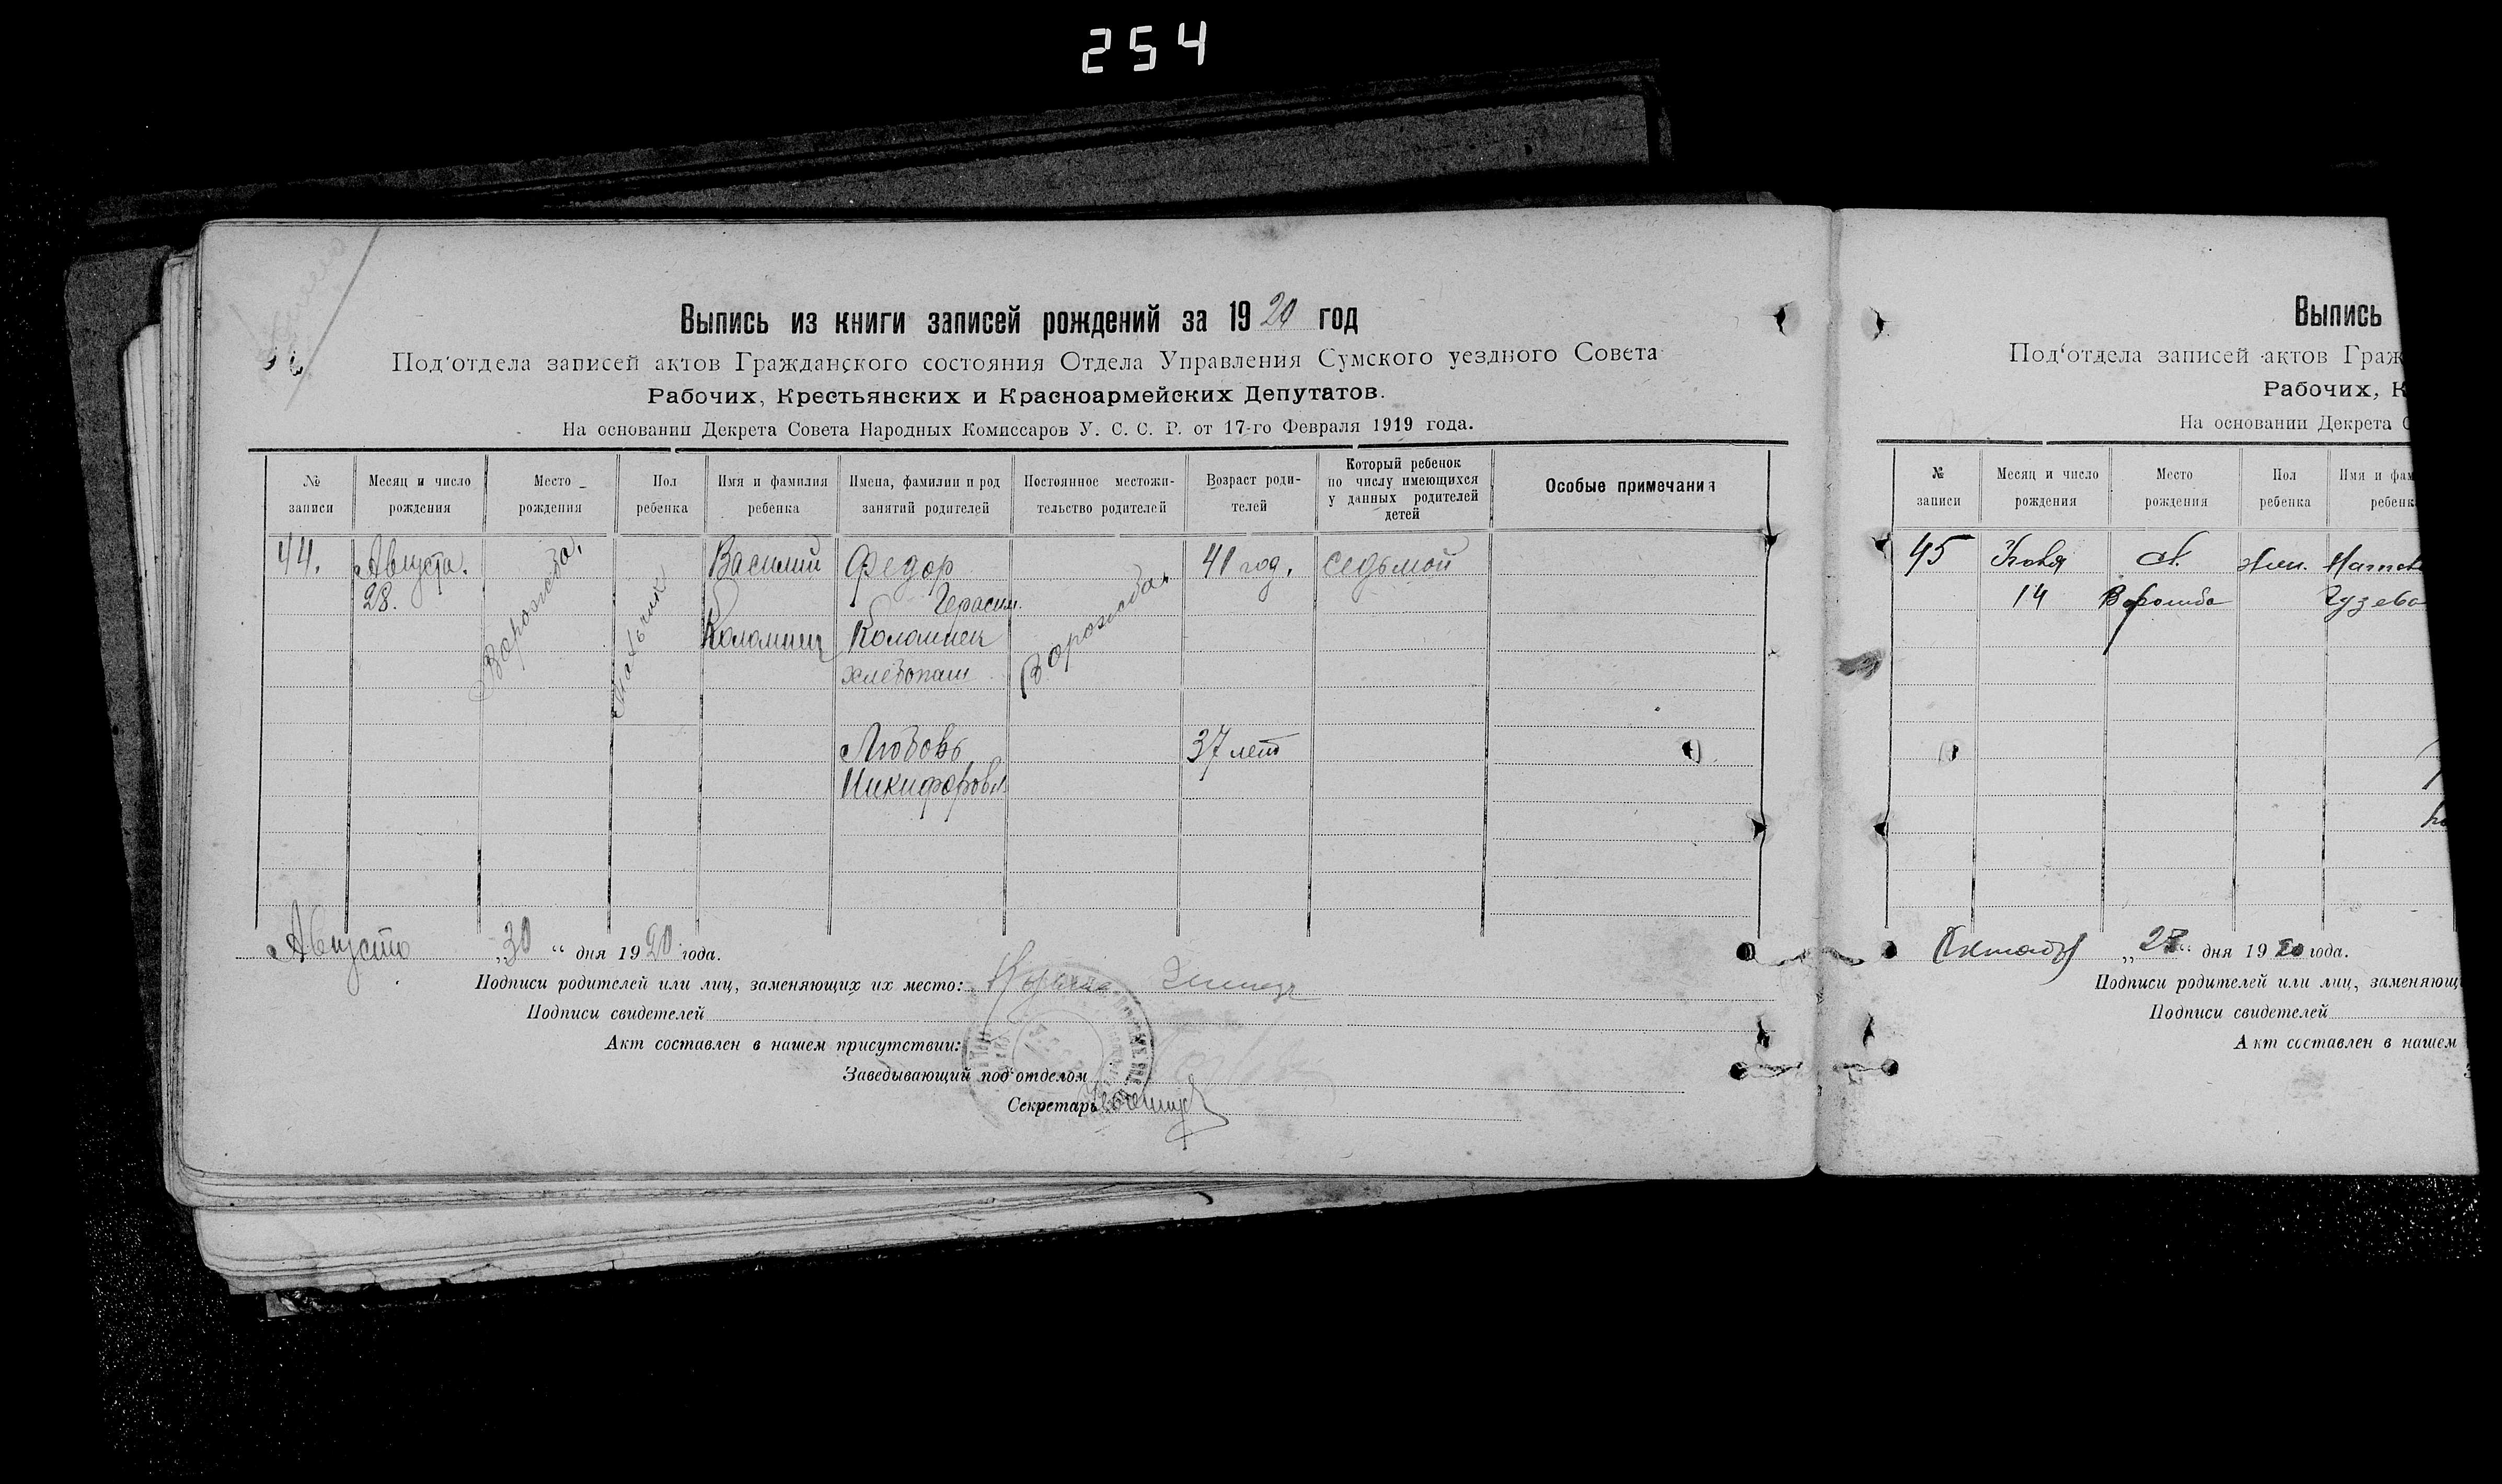 254
Выпись из книги записей рождений за 1920 год
Под'отдела записей актов Гражданского состояния Отдела Управления Сумского уездного Совета
Рабочих, Крестьянских и Красноармейских Депутатов.
На основании Декрета Совета Народных Комиссаров У. С. С. Р. от 17-го Февраля 1919 года.
№ записи
Месяц и число рождения
Место рождения
Пол ребенка
Имя и фамилия ребенка
Имена, фамилии и род занятий родителей
Постоянное местожительство родителей
Возраст родителей
Который ребенок по числу имеющихся у данных родителей детей
Особые примечания
44.
Августа.
28.
Ворожба.
Мальчик
Василий
Коломиец
Федор
Герасим.
Коломиец
хлебопаш
Ворожба.
41 год.
седьмой
Любовь
Никифоровна
37 лет
Августа „30“ дня 1920 года.
Подписи родителей или лиц, заменяющих их место:
Подписи свидетелей
Акт составлен в нашем присутствии:
Заведывающий под'отделом
Секретарь
Выпись
Под'отдела записей актов Граж
Рабочих, К
На основании Декрета С
№ записи
Месяц и число рождения
Место рождения
Пол ребенка
Имя и фам
ребенк
45
14
с.
Ворожба
жен.
Гузева
Октября „28“ дня 1920 года.
Подписи родителей или лиц, заменяющ
Подписи свидетелей
Акт составлен в нашем